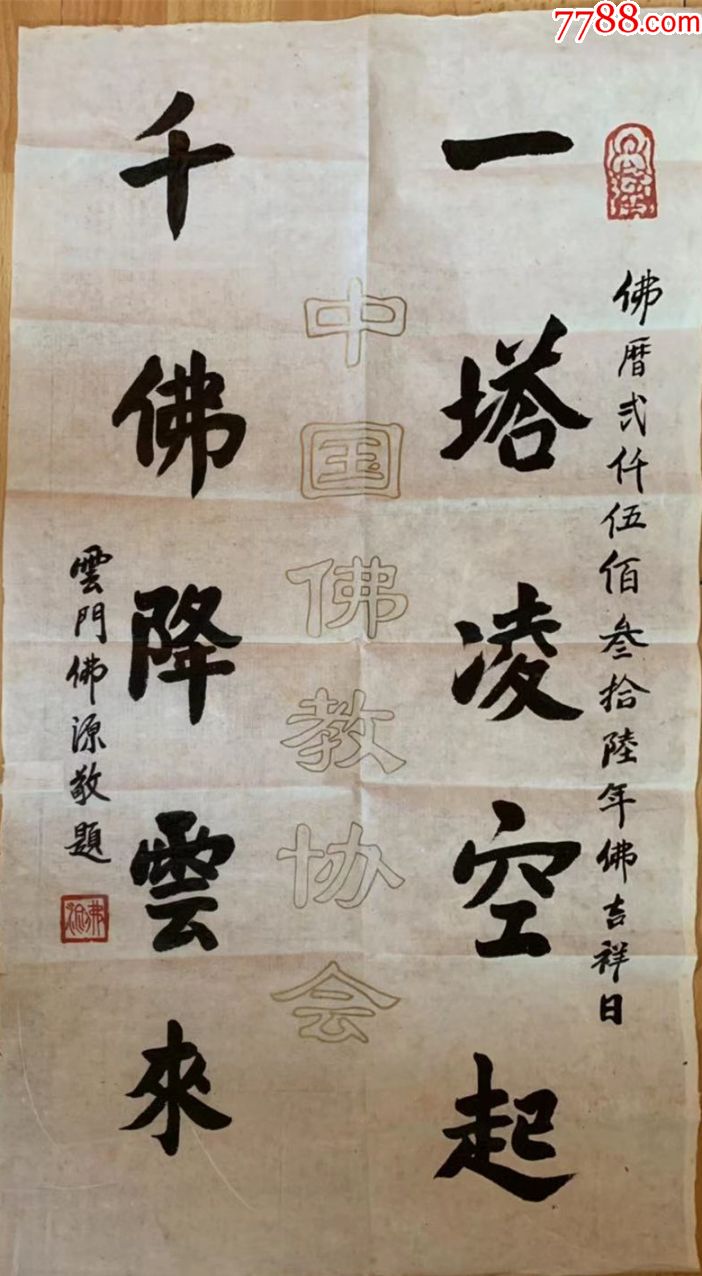 7788.com
佛曆弍仟伍佰叁拾陸年佛吉祥日
一塔凌空起
中国佛教协会
千佛降雲來
雲門佛源敬題
佛源